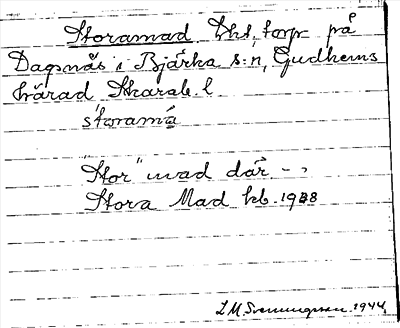 Storamad Lht, torp på
Dagsnäs i Bjärka s:n, Gudhems
härad Skarab. l
stòramá
"Stor" mad där –
Stora Mad kb. 1938
L M Svenungsson 1944